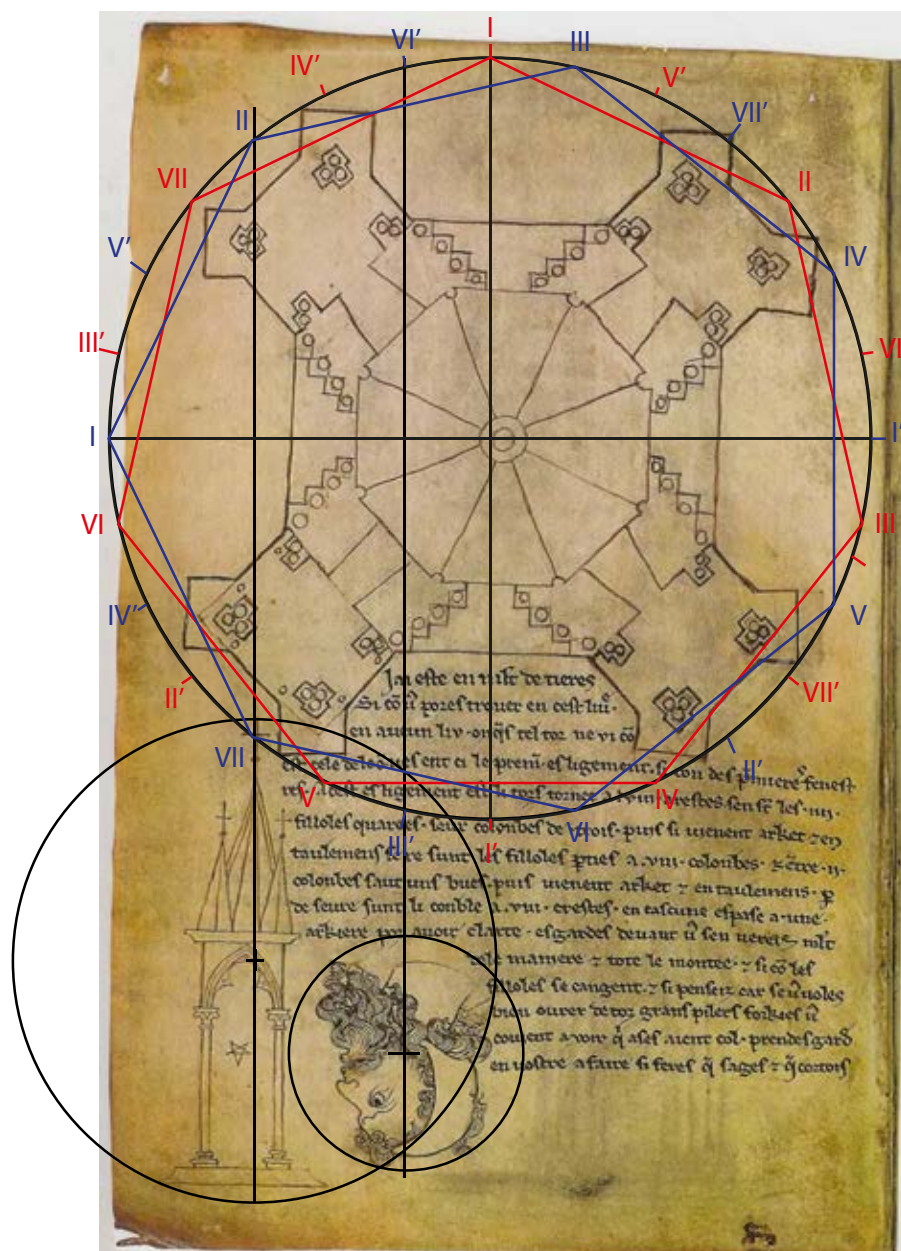 I
III
VI'
IV'
V'
VII'
II
VII
II
V'
IV
III'
VI
I
I'
VI
III
IV'
V
II'
VII'
VII
II'
V
IV
VI
III'
I'
Jai este en mlt de tieres
Si cō ū pores trover en cest liū
en aucun liv onqs tel tor ne vi cō
est cele de ves ent ci le prem es ligement si con des
es ligement
filloles quarees seur colonbes de trois puis si vienent arket z en
taulemens sunt les filloles pties a viii colonbes z
colonbes saut uns bues puis vienent arket z en taulemens
de seure sunt li conble a viii crestes en cascune espase a une
arkiere por avoir clarte esgardes devant ū sen vereis mlt
de le maniere z tote le montee z si cō les
filloles se cangent z si penseiz car se ū voles
bien ovrer de toz grans pilers forkies ū
covient avoir q ases aient col prendes gard
en vostre afaire si feres q sages z q cortois